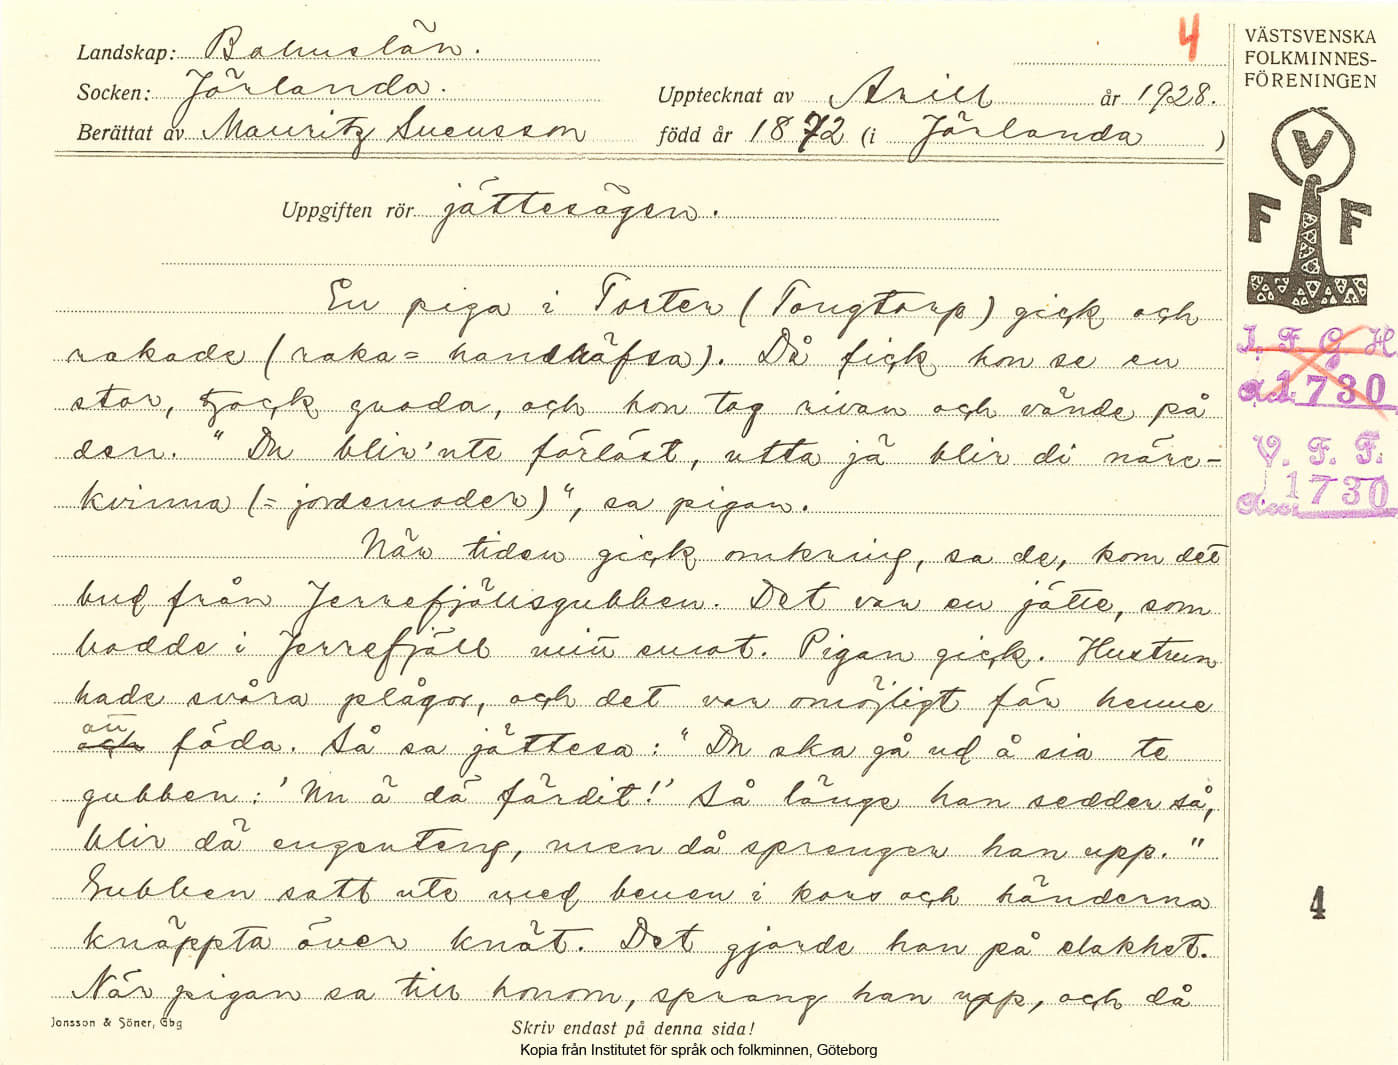 4
Landskap: Bohuslän.
Socken: Jörlanda.
Upptecknat av Arill år 1928.
Berättat av Mauritz Svensson född år 1872 (i Jörlanda )
Uppgiften rör jättesägen.
En piga i Torter (Tongtorp) gick och
rakade (raka = handräfsa). Då fick hon se en
stor, tjock groda, och hon tog rivan och vände på
den. "Du blir 'nte förlöst, utta jä blir di näre-
kvinna (= jordemoder)", sa pigan.
När tiden gick omkring, sa de, kom det
bud från Jerrefjällsgubben. Det var en jätte, som
bodde i Jerrefjäll mitt emot. Pigan gick. Hustrun
hade svåra plågor, och det var omöjligt för henne
att föda. Så sa jättesa: "Du ska gå ud å sia te
gubben: 'Nu ä dä färdit!' Så länge han sedder så,
blir dä engenteng, men då sprenger han upp."
Gubben satt ute med benen i kors och händerna
knäppta över knät. Det gjorde han på elakhet.
När pigan sa till honom, sprang han upp, och då
Jonsson & Söner, Gbg
Skriv endast på denna sida!
Kopia från Institutet för språk och folkminnen, Göteborg
VÄSTSVENSKA
FOLKMINNES-
FÖRENINGEN
V
F F
I. F. G. H.
Acc. 1730
V. F. F.
Acc. 1730
4